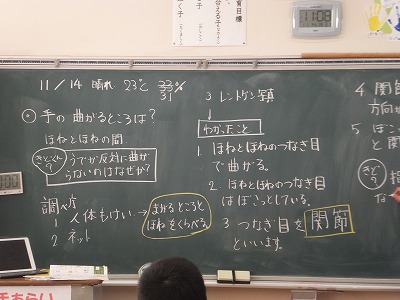 11/14 晴れ 23℃
31
手の曲がるところは?
ほねとほねの間
うでが反対に曲が
らないのはなぜか?
調べ方
1 人体もけい→
2 ネット
まがるところと
ほねをくらべる。
3 レントゲン写真
わかったこと
1. ほねとほねのつなぎ目
で曲がる。
2. ほねとほねのつなぎ目
はぼこっとしている。
3 つなぎ目を関節
といいます。
4 関節
方向が
5 ほこ
と関
指
な
11:08
手あらい